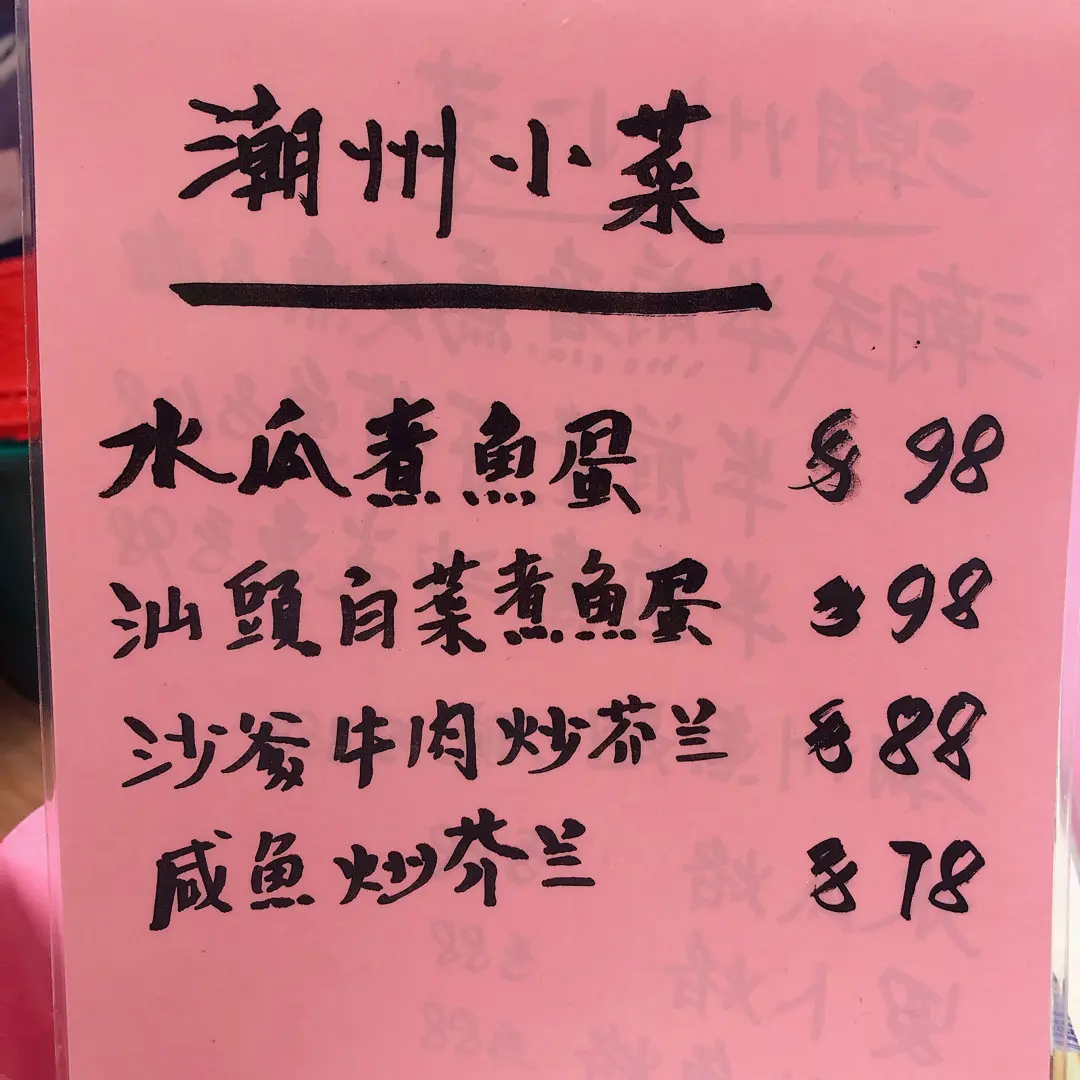 潮州小菜
水瓜煮魚蛋 $98
汕頭白菜煮魚蛋 $98
沙爹牛肉炒芥兰 $88
咸魚炒芥兰 $78